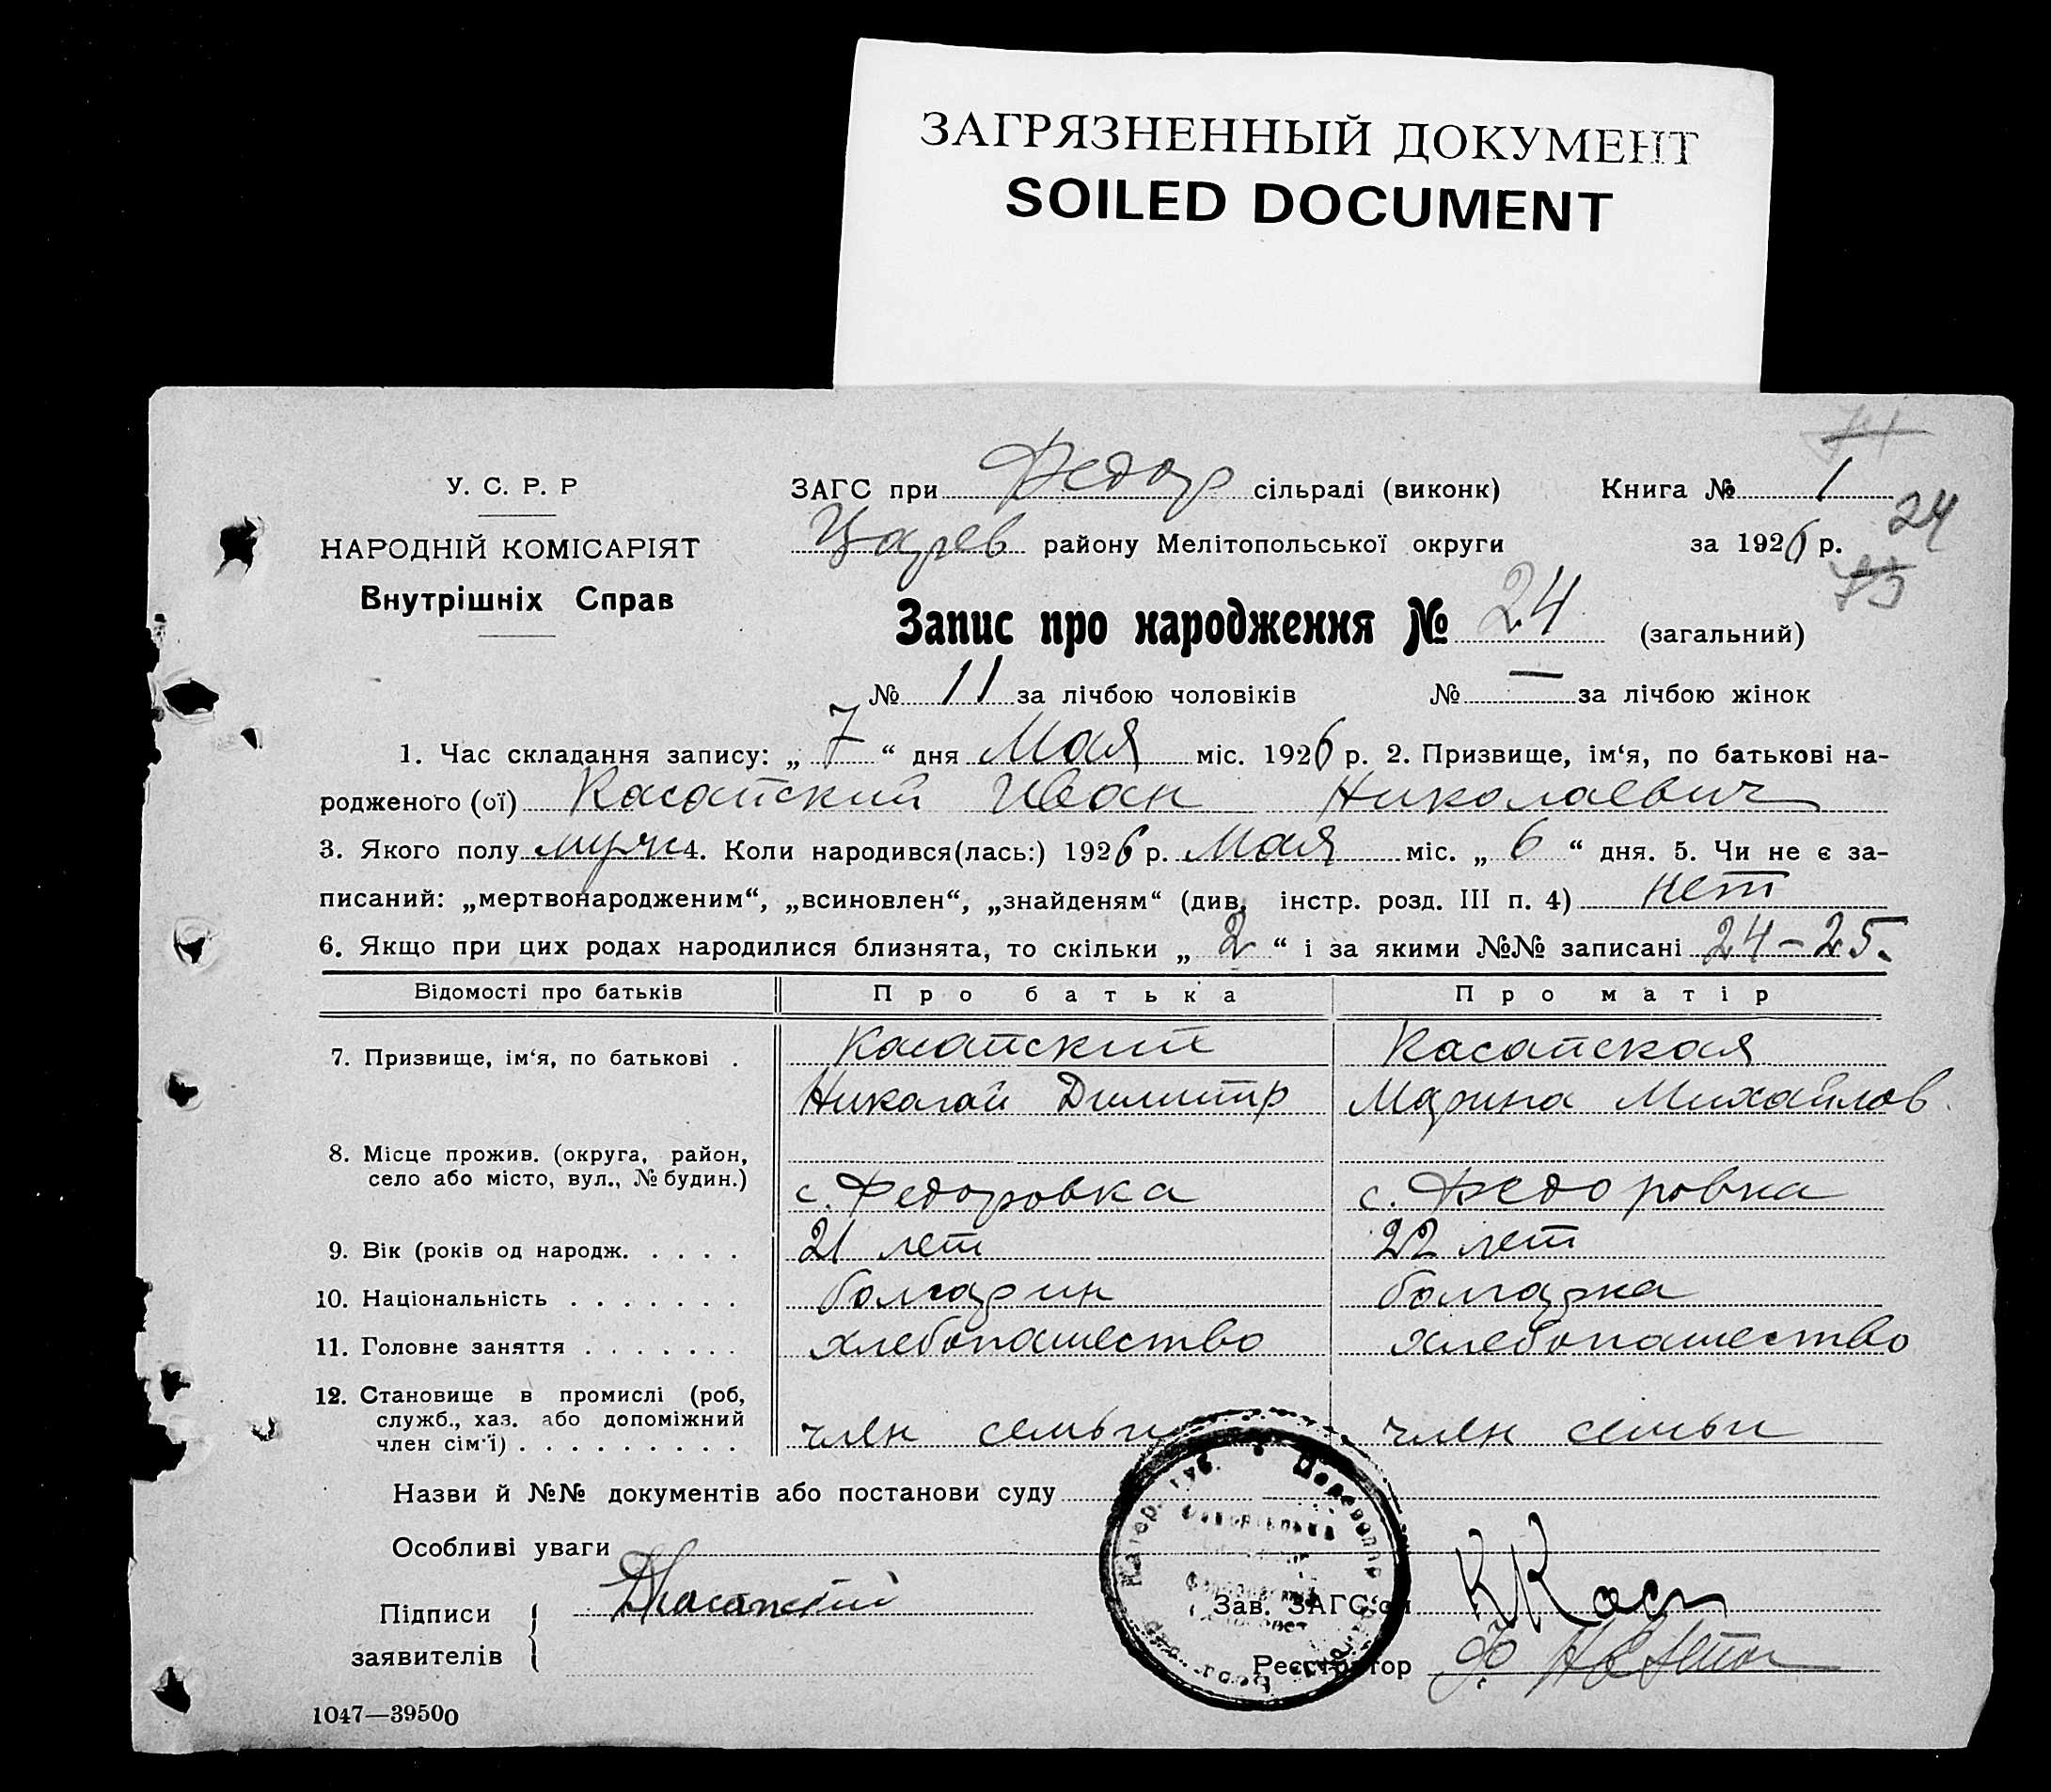 ЗАГРЯЗНЕННЫЙ ДОКУМЕНТ
SOILED DOCUMENT
У. С. Р. Р
НАРОДНІЙ КОМІСАРІЯТ
Внутрішніх Справ
74
ЗАГС при Федор сільраді (виконк) Книга № 1
24
Царев району Мелітопольської округи за 1926 р.
73
Запис про народження № 24 (загальний)
№ 11 за лічбою чоловіків № — за лічбою жінок
1. Час складання запису: „ 7 “ дня Мая міс. 1926 р. 2. Призвище, ім‘я, по батькові на-
родженого (ої) Касапский Иван Николаевич
3. Якого полу муж 4. Коли народився(лась:) 1926 р. Мая міс. „ 6 “ дня. 5. Чи не є за-
писаний: „мертвонародженим“, „всиновлен“, „знайденям“ (див. інстр. розд. III п. 4) нет
6. Якщо при цих родах народилися близнята, то скільки „ 2 “ і за якими №№ записані 24-25.
Відомості про батьків Про батька Про матір
7. Призвище, ім‘я, по батькові . Касапский Касапская
Николай Димитр Марина Михайлов
8. Місце прожив. (округа, район,
село або місто, вул., № будин.) с. Федоровка с. Федоровка
9. Вік (років од народж. . . . . 21 лет 22 лет
10. Національність . . . . . . . болгарин болгарка
11. Головне заняття . . . . . . . хлебопашество хлебопашество
12. Становище в промислі (роб,
служб., хаз. або допоміжний
член сім‘ї) . . . . . . . . . член семьи член семьи
Назви й №№ документів або постанови суду
Особливі уваги
Підписи Касапский
Зав. ЗАГС‘ом
заявителів
Реєстратор
1047—39500